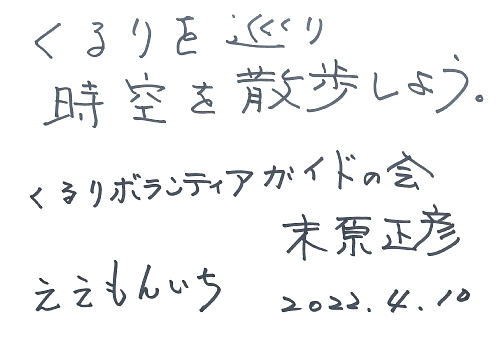 くるりを巡り
時空を散歩しよう。
くるりボランティアガイドの会
末原正彦
ええもんいち 2022.4.10